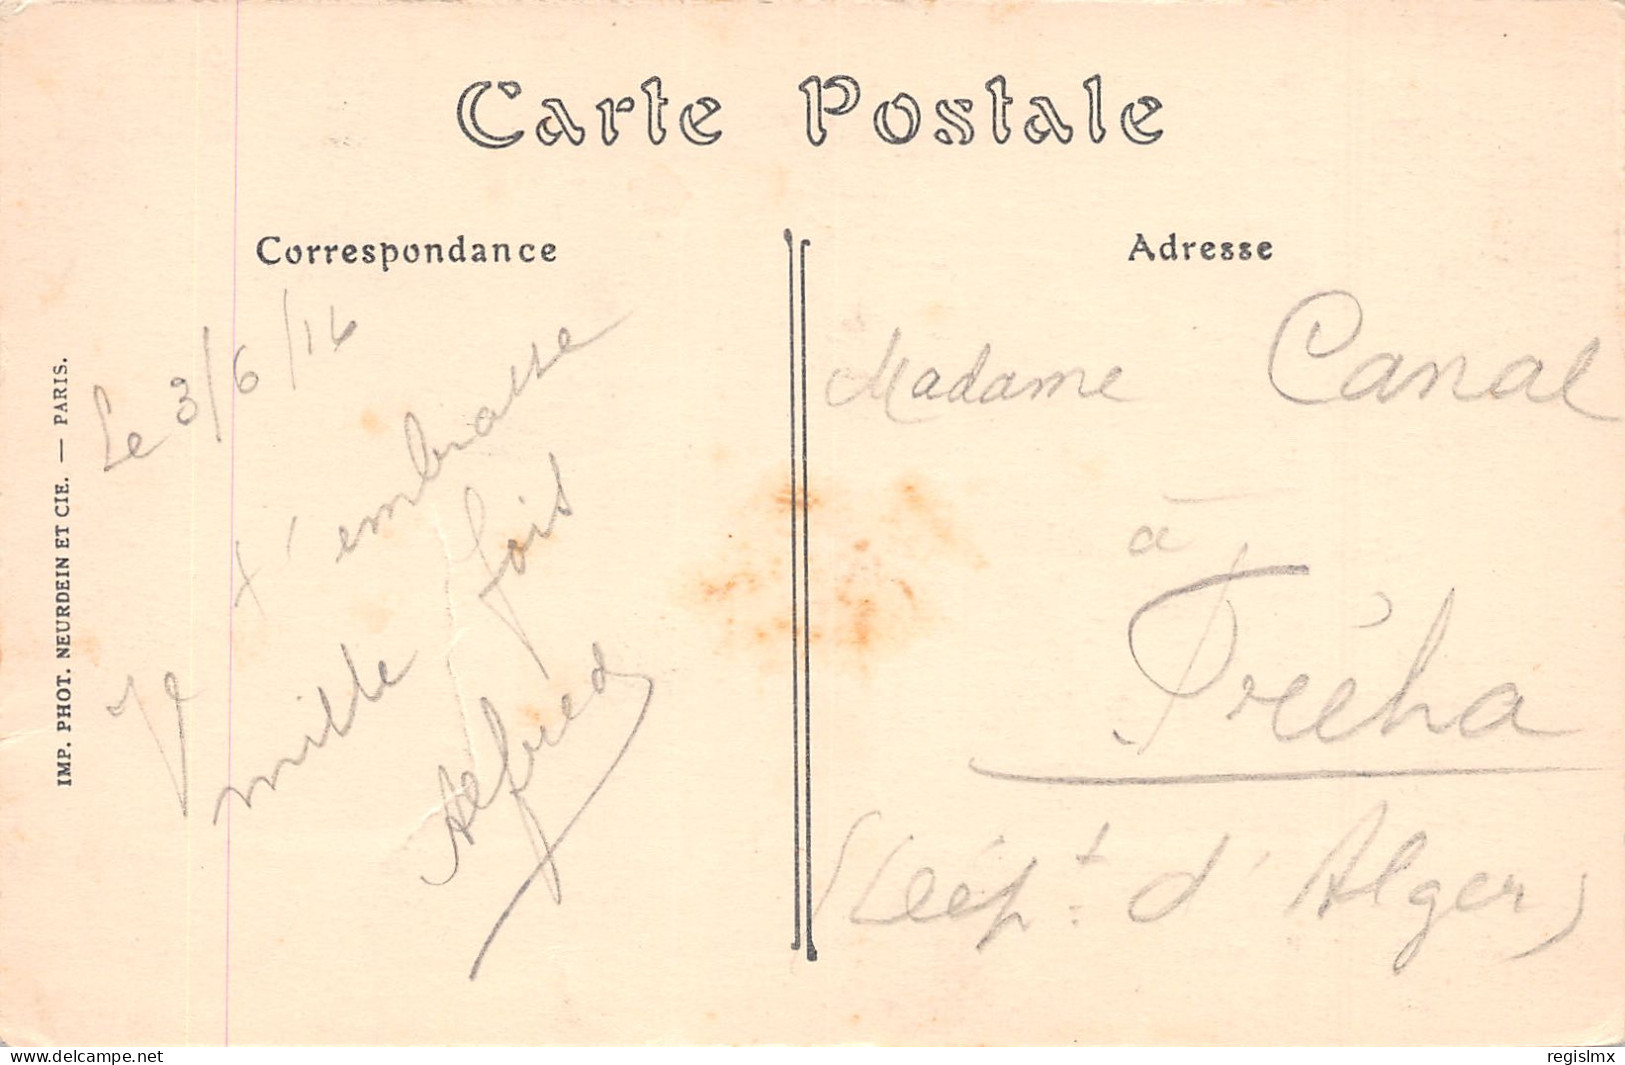 Carte Postale
Correspondance
Le 3/6/14
Je t'embrasse
mille fois
Alfred
Adresse
Madame Canal
à
Fréha
(Dép.t d'Alger)
IMP. PHOT. NEURDEIN ET CIE. — PARIS.
www.delcampe.net
regislmx